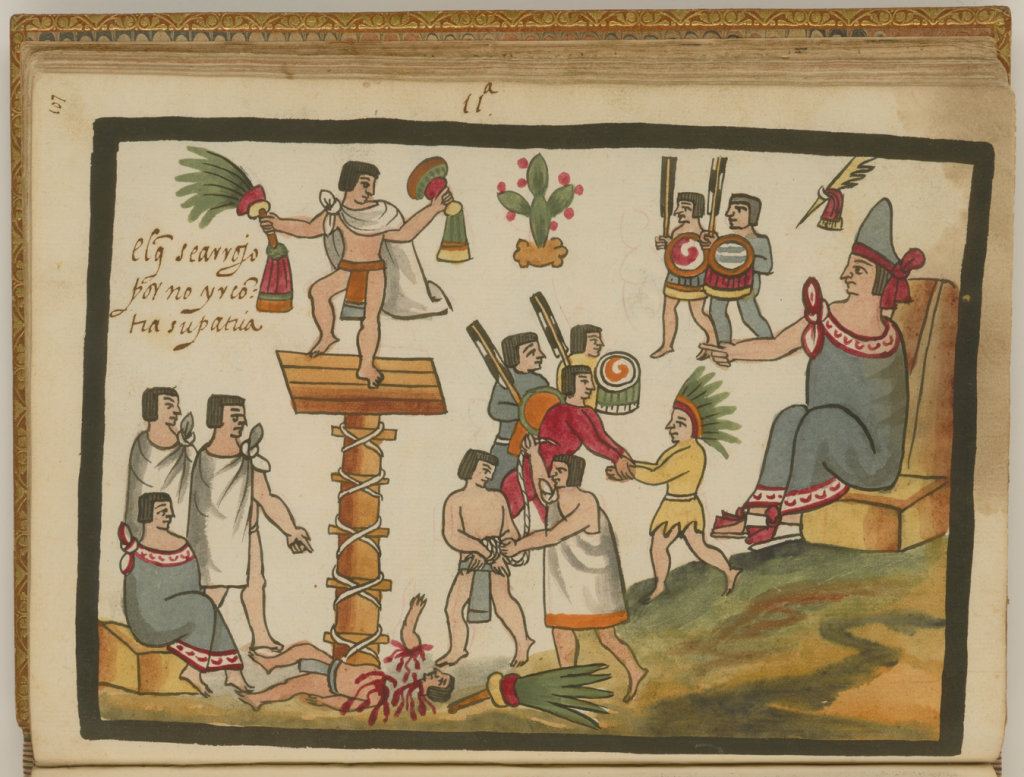 107
11ª
elq̃ searrojo
por no yr cõ-
tra su patria